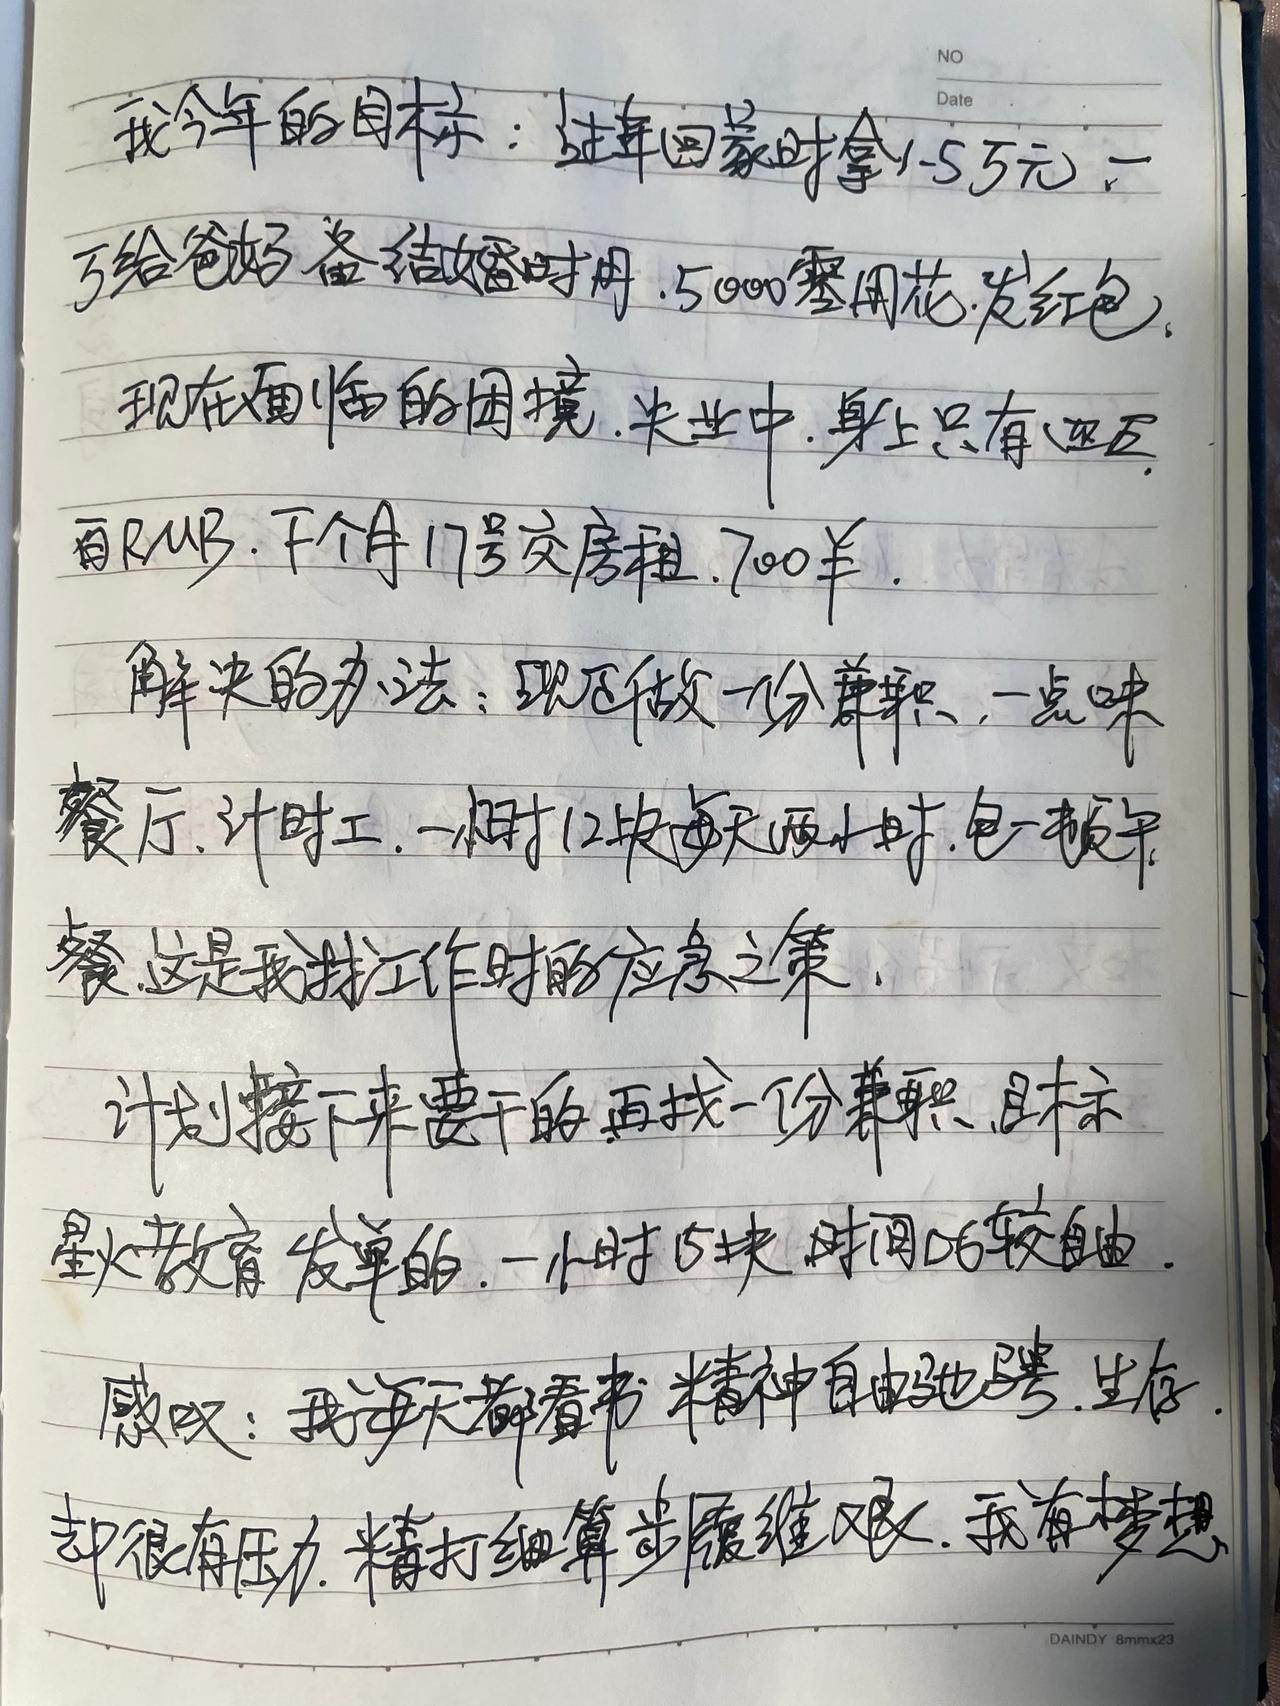 NO
Date
我今年的目标：过年回家时拿1.5万元、一
万给爸妈备结婚时用.5000零用花.发红包、
现在面临的困境.失业中.身上只有四五
百RMB.下个月17号交房租.700￥.
解决的办法：现在做一份兼职、一点味
餐厅、计时工.一小时12块每天两小时.包一顿午
餐.这是我找工作时的应急之策.
计划接下来要干的.再找一份兼职、目标
星火教育发单的.一小时15块时间比较自由.
感叹：我每天都看书精神自由驰骋.生存.
却很有压力.精打细算步履维艰.我有梦想、
DAINDY 8mmx23